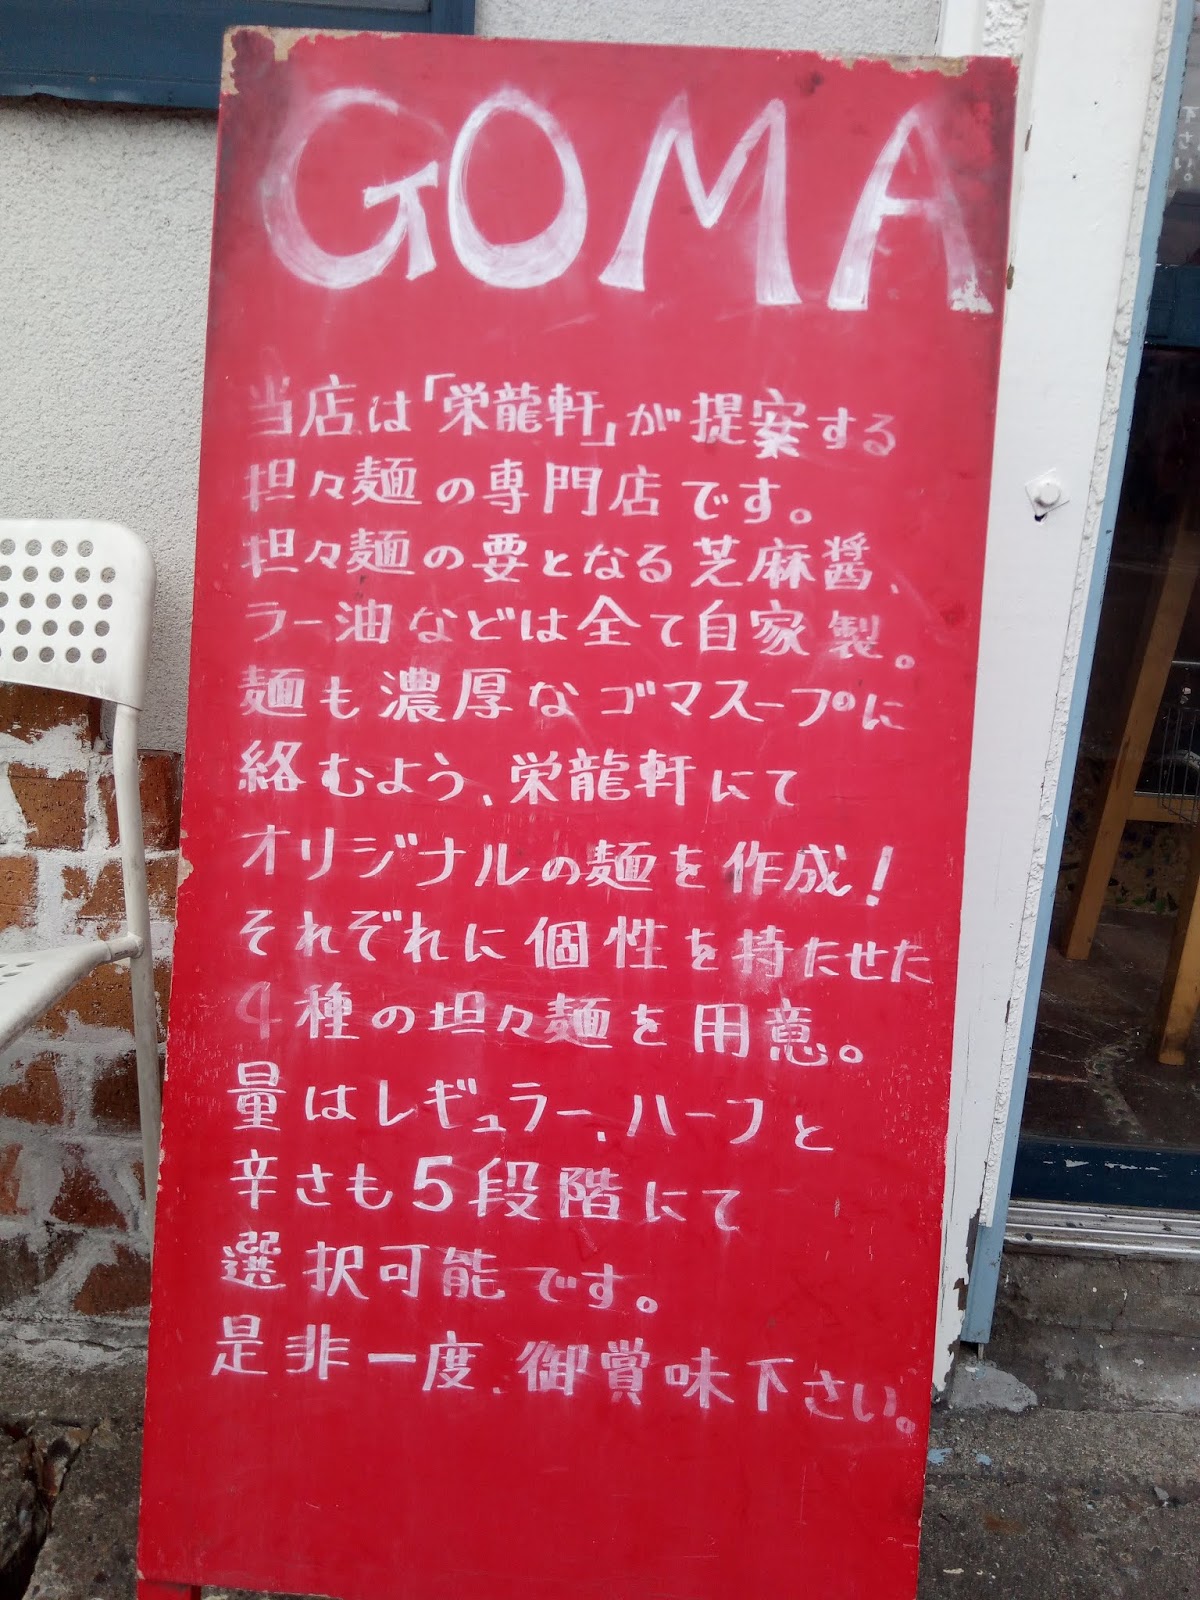 GOMA
当店は「栄龍軒」が提案する
担々麺の専門店です。
担々麺の要となる芝麻醤、
ラー油などは全て自家製。
麺も濃厚なゴマスープに
絡むよう、栄龍軒にて
オリジナルの麺を作成!
それぞれに個性を持たせた
4種の坦々麺を用意。
量はレギュラー、ハーフと
辛さも5段階にて
選択可能です。
是非一度、御賞味下さい。
下さい。